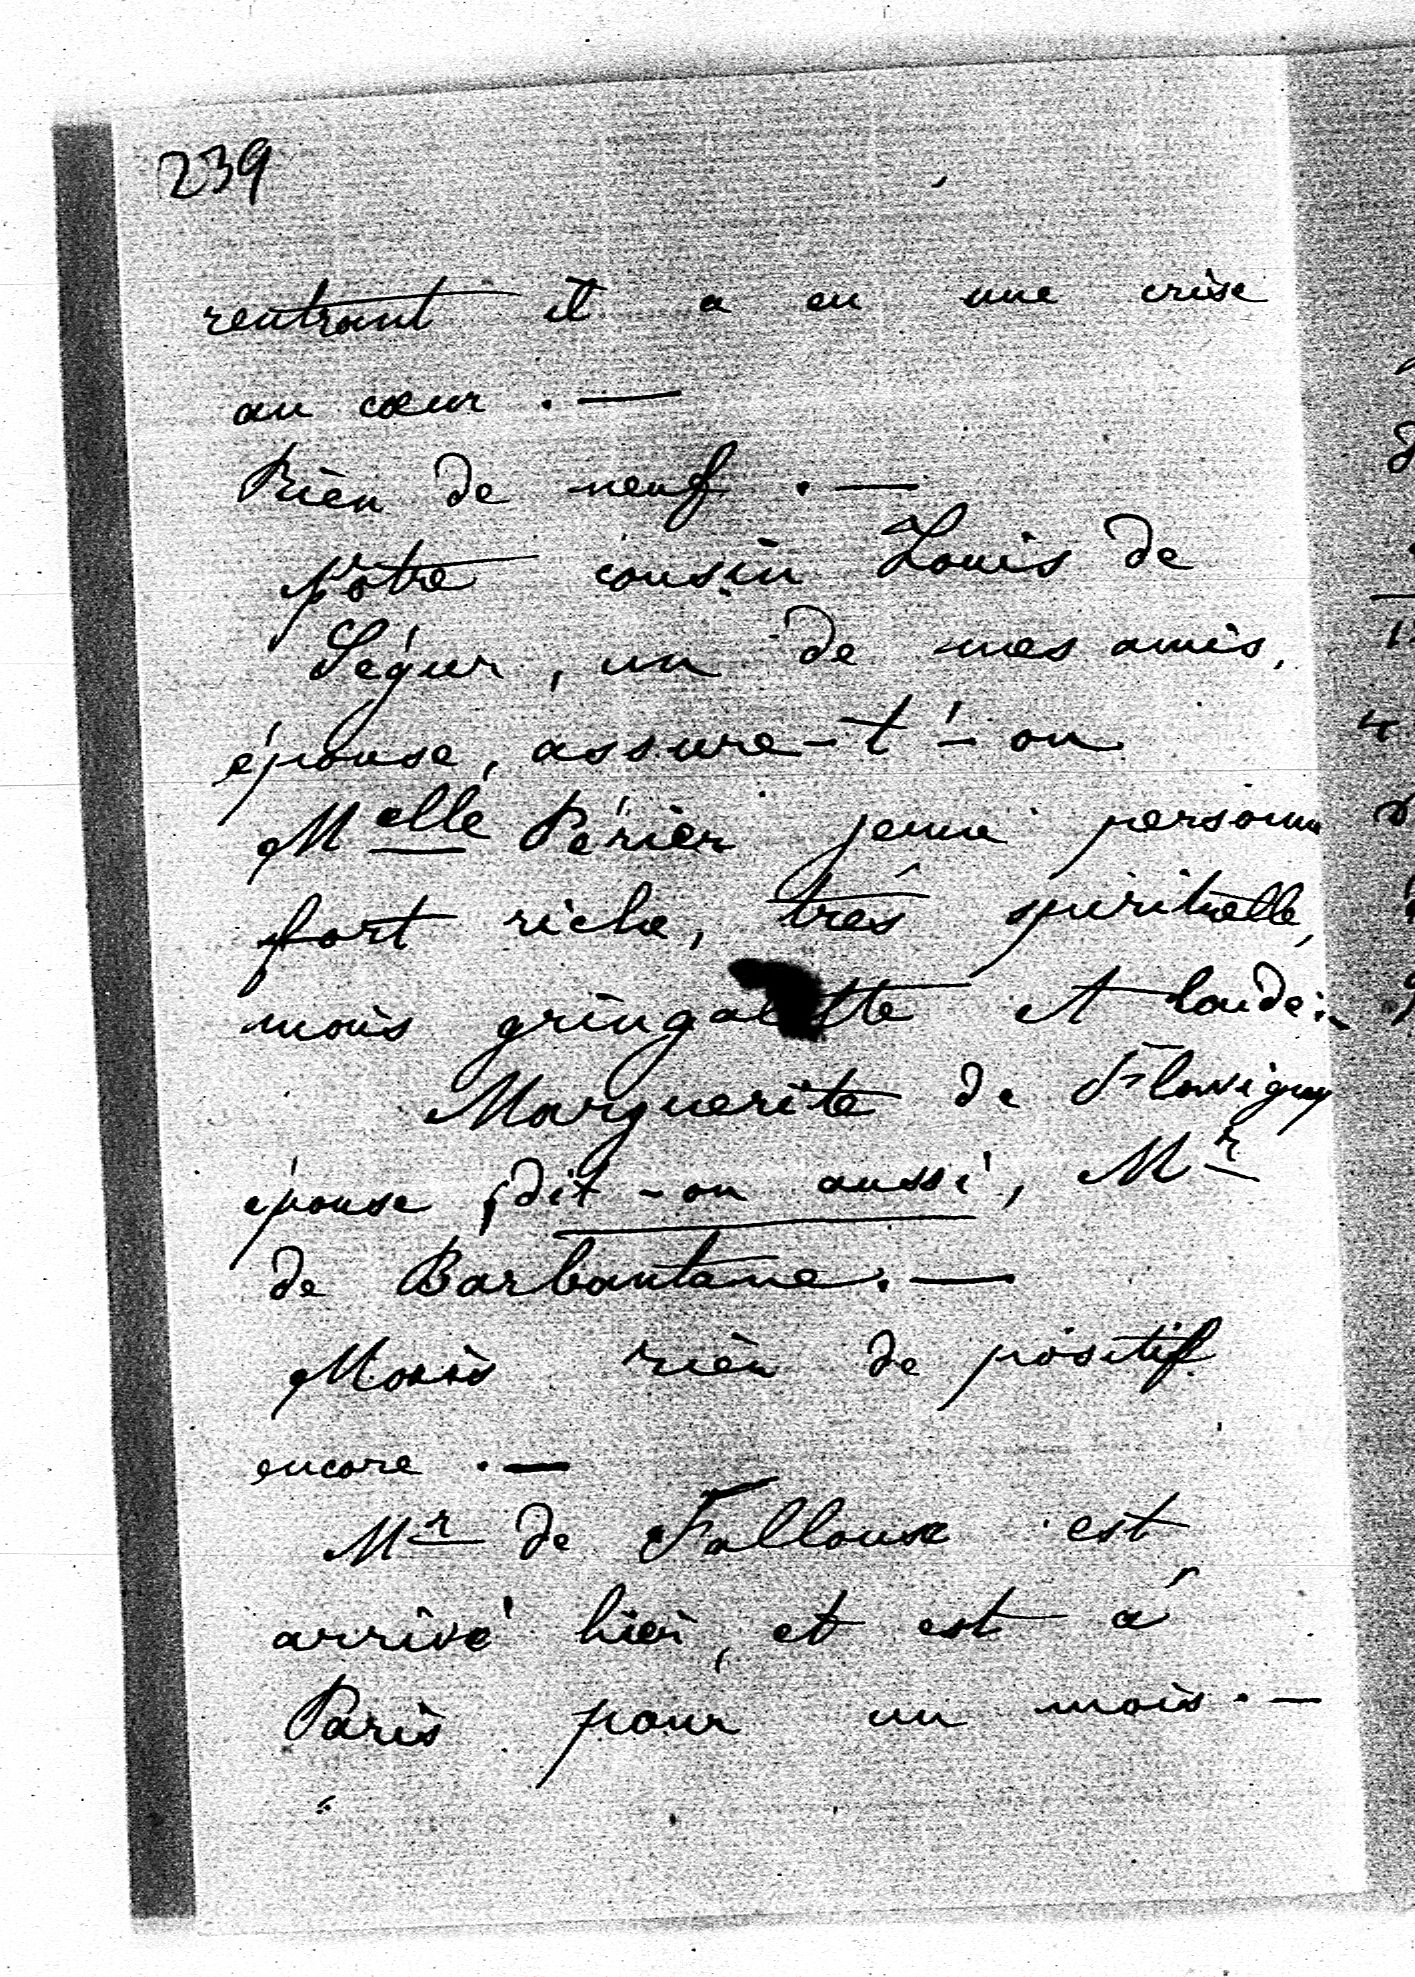 239
rentrant il a eu une crise
au cœur . —
Rien de neuf . —
Nôtre cousin Louis de
Ségur, un de mes amis,
épouse, assure-t'-on
Melle Périer jeune personne
fort riche, très spirituelle,
mais gringalette et laide.
Marguerite de Flavigny
épouse, dit-on aussi, Mr
de Barbantane. —
Mais rien de positif
encore . —
Mr de Falloux est
arrivé hier, et est à
Paris pour un mois. —